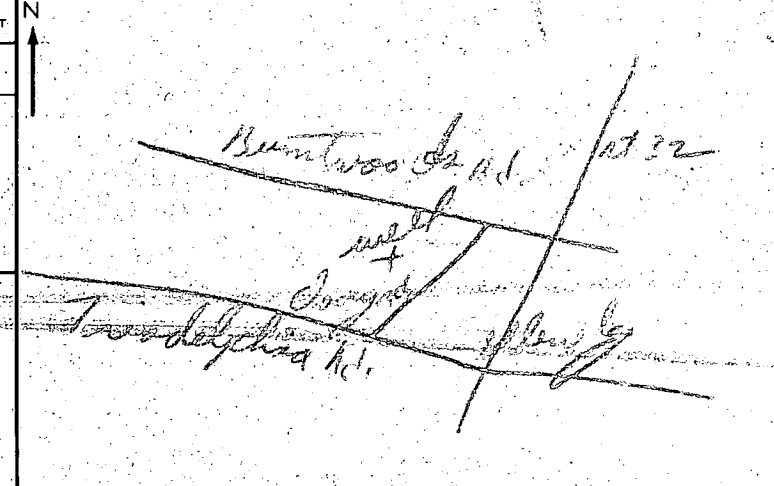 T
N
Burntwoods Rd.
Rt 32
well
+
Triadelphia Rd.